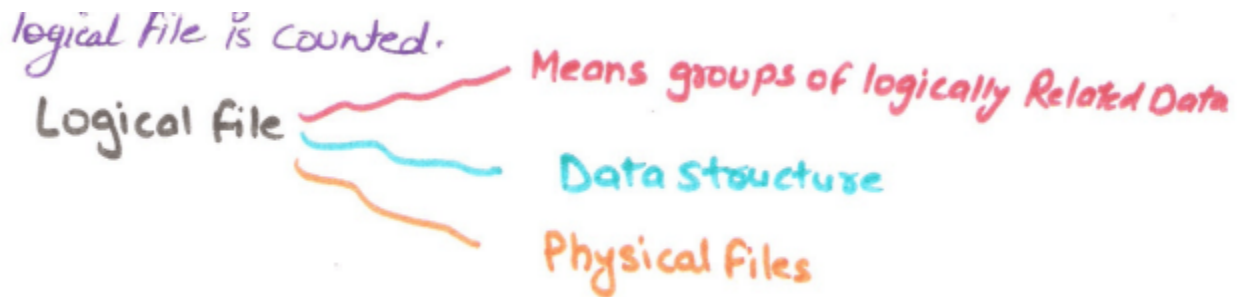 logical file is counted.
Logical file
Means groups of logically Related Data
Data structure
Physical files